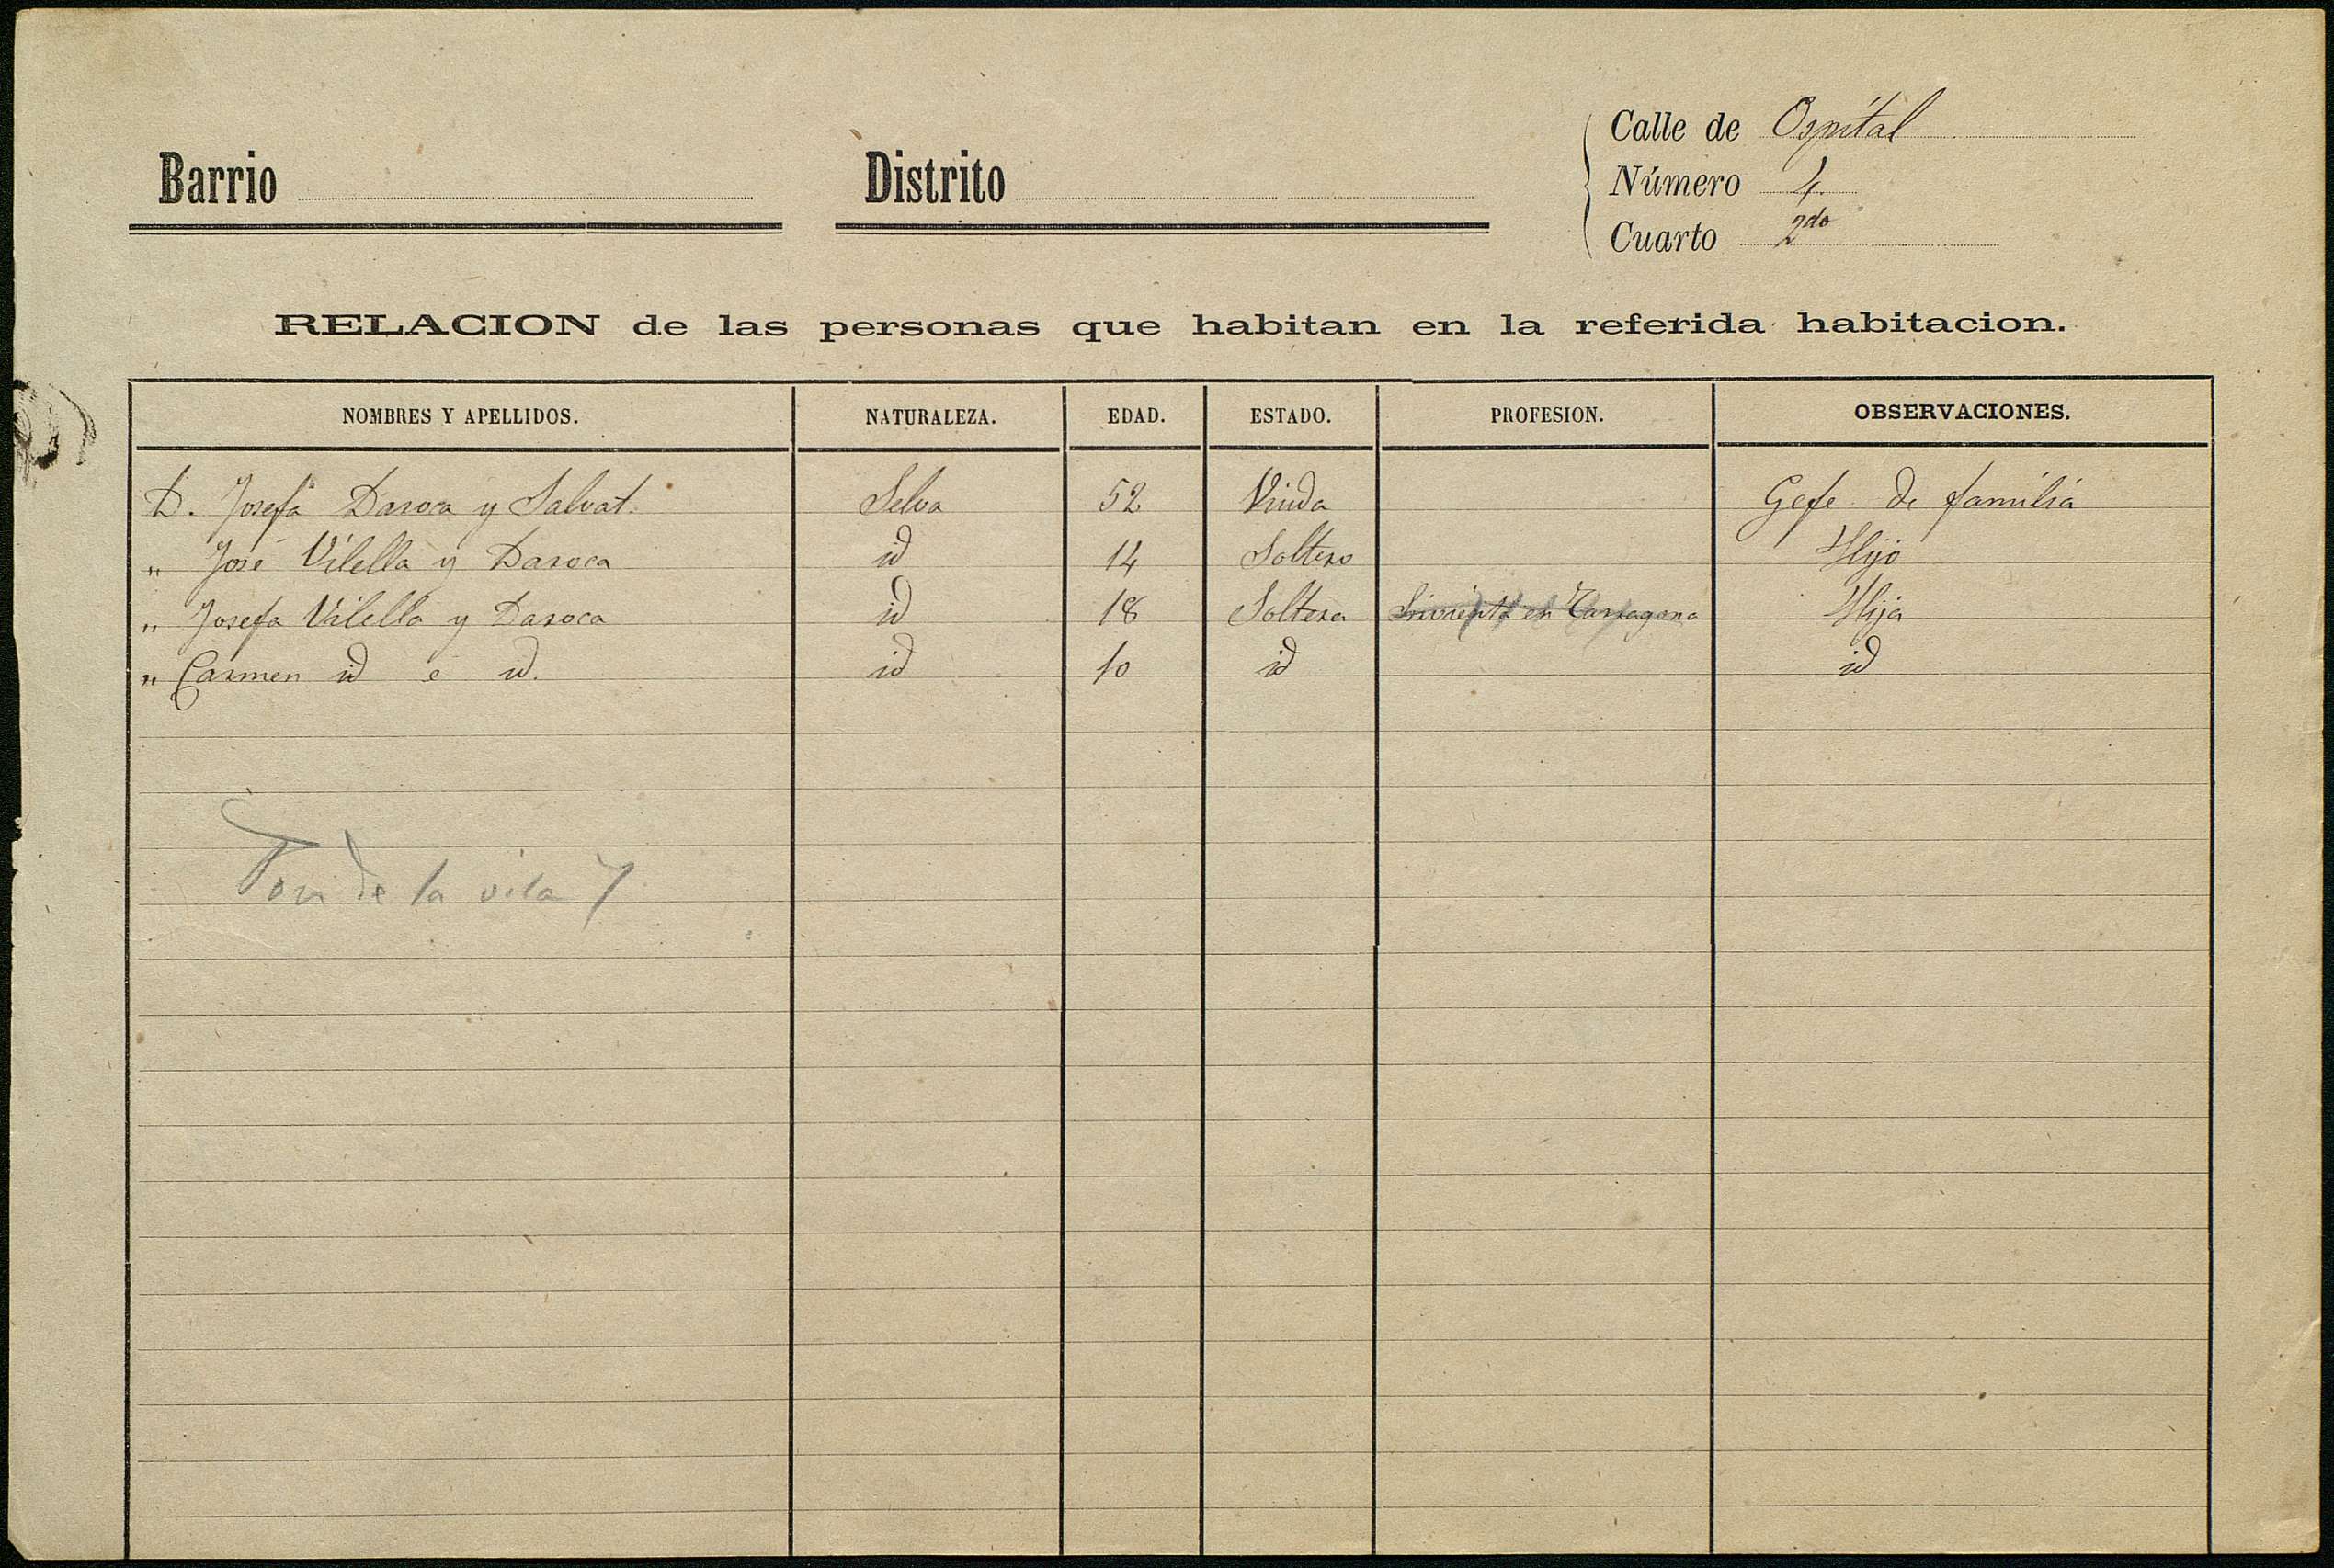 Barrio
Distrito
Calle de Ospital
Número 4.
Cuarto 2do
RELACION de las personas que habitan en la referida habitacion.
NOMBRES Y APELLIDOS. NATURALEZA. EDAD. ESTADO. PROFESION. OBSERVACIONES.
D. Josefa Daroca y Salvat. Selva 52 Viuda Gefe de familia
" José Vilella y Daroca id 14 Soltero Hijo
" Josefa Vilella y Daroca id 18 Soltera Sirvienta en Tarragona Hija
" Carmen id é id. id 10 id id
de la vila 7